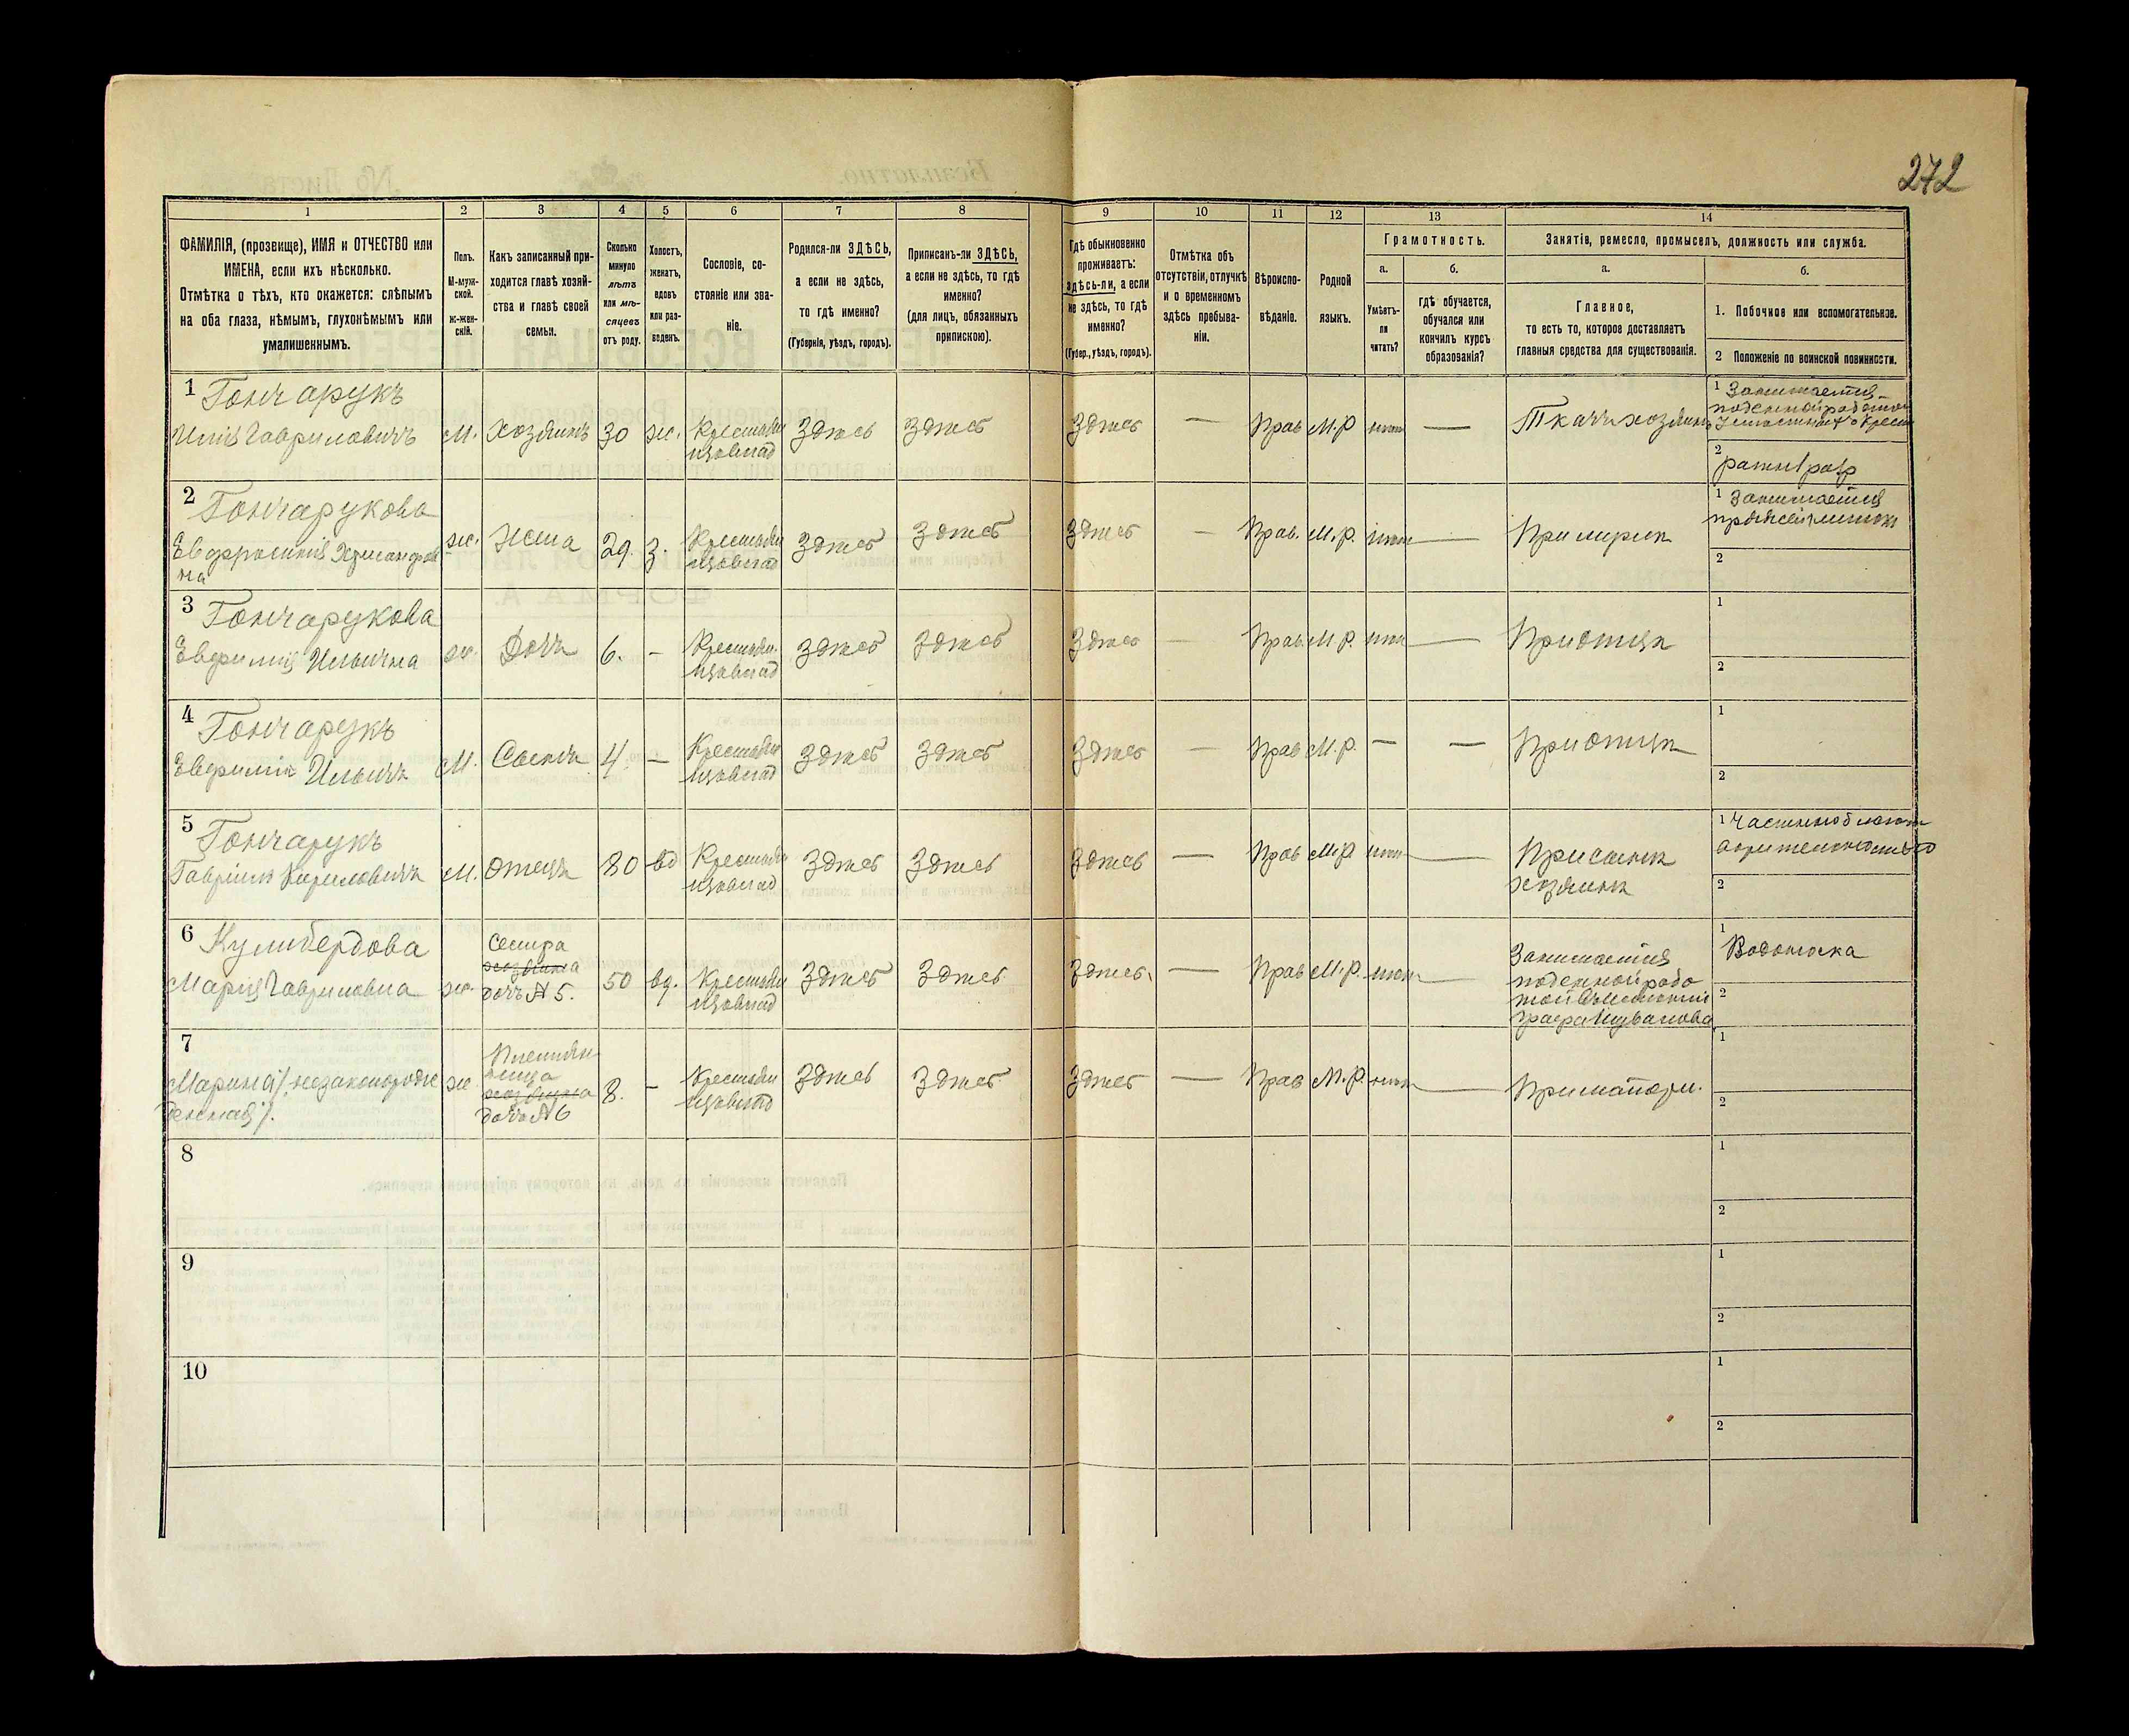 272
1 2 3 4 5 6 7 8 9 10 11 12 13 14
ФАМИЛІЯ, (прозвище), ИМЯ и ОТЧЕСТВО или
ИМЕНА, если ихъ нѣсколько.
Отмѣтка о тѣхъ, кто окажется: слѣпымъ
на оба глаза, нѣмымъ, глухонѣмымъ или
умалишеннымъ.
Полъ.
М-муж-
ской.
ж-жен-
скій.
Какъ записанный при-
ходится главѣ хозяй-
ства и главѣ своей
семьи.
Сколько
минуло
лѣтъ
или мѣ-
сяцевъ
отъ роду.
Холостъ,
женатъ,
вдовъ
или раз-
веденъ.
Сословіе, со-
стояніе или зва-
ніе.
Родился-ли ЗДѢСЬ,
а если не здѣсь,
то гдѣ именно?
(Губернія, уѣздъ, городъ).
Приписанъ-ли ЗДѢСЬ,
а если не здѣсь, то гдѣ
именно?
(для лицъ, обязанныхъ
припискою).
Гдѣ обыкновенно
проживаетъ:
здѣсь-ли, а если
не здѣсь, то гдѣ
именно?
(Губер., уѣздъ, городъ).
Отмѣтка объ
отсутствіи, отлучкѣ
и о временномъ
здѣсь пребыва-
ніи.
Вѣроиспо-
вѣданіе.
Родной
языкъ.
Грамотность.
а.
Умѣетъ-
ли
читать?
б.
гдѣ обучается,
обучался или
кончилъ курсъ
образованія?
Занятіе, ремесло, промыселъ, должность или служба.
а.
Главное,
то есть то, которое доставляетъ
главныя средства для существованія.
б.
1. Побочное или вспомогательное.
2 Положеніе по воинской повинности.
1 Гончарукъ
Илія Гавриловичъ м. хозяинъ 30 ж. Крестьян здѣсь здѣсь здѣсь — Прав М.Р нѣтъ — Ткачъ хозяинъ
1 Занимается
поденной работой
2
2 Гончарукова
Евфросинія Хрисанфов
на
ж. Жена 29. з. Крестьян здѣсь здѣсь здѣсь — Прав. М.р. нѣтъ — При мужѣ
1 Занимается
2
3 Гончарукова
Евфимія Ильична ж. Дочь 6. — Крестьян здѣсь здѣсь здѣсь — Прав. М.р. нѣтъ — При отцѣ
1
2
4 Гончарукъ
Евфимій Ильичъ м. Сынъ 4 — Крестьян здѣсь здѣсь здѣсь — Прав М.р. — — При отцѣ
1
2
5 Гончарукъ
Гавріилъ Кириловичъ м. отецъ 80 вд Крестьян здѣсь здѣсь здѣсь — Прав М.р нѣтъ — При сынѣ
хозяинѣ
1
2
6 Кулибердова
Марія Гавриловна ж.
Сестра
хозяина
дочь № 5.
50 вд. Крестьян здѣсь здѣсь здѣсь — Прав М.р. нѣтъ —
Занимается
поденной рабо
той въ имѣніи
графа Шувалова
1 Водоноска
2
7
Марина /незаконорож
денная/.
ж
Племян
ница
хозяина
дочь № 6
8. — Крестьян здѣсь здѣсь здѣсь — Прав М.р. нѣтъ — При матери.
1
2
8
1
2
9
1
2
10
1
2